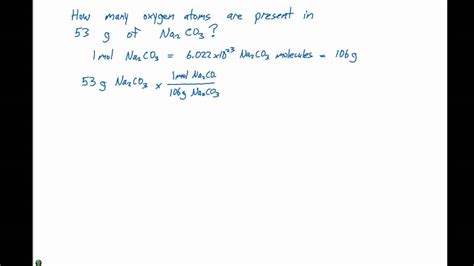 How many oxygen atoms are present in
53 g of Na₂CO₃?
1 mol Na₂CO₃ = 6.022×10²³ Na₂CO₃ molecules = 106g
53g Na₂CO₃ × 1mol Na₂CO.
106g Na₂CO₃